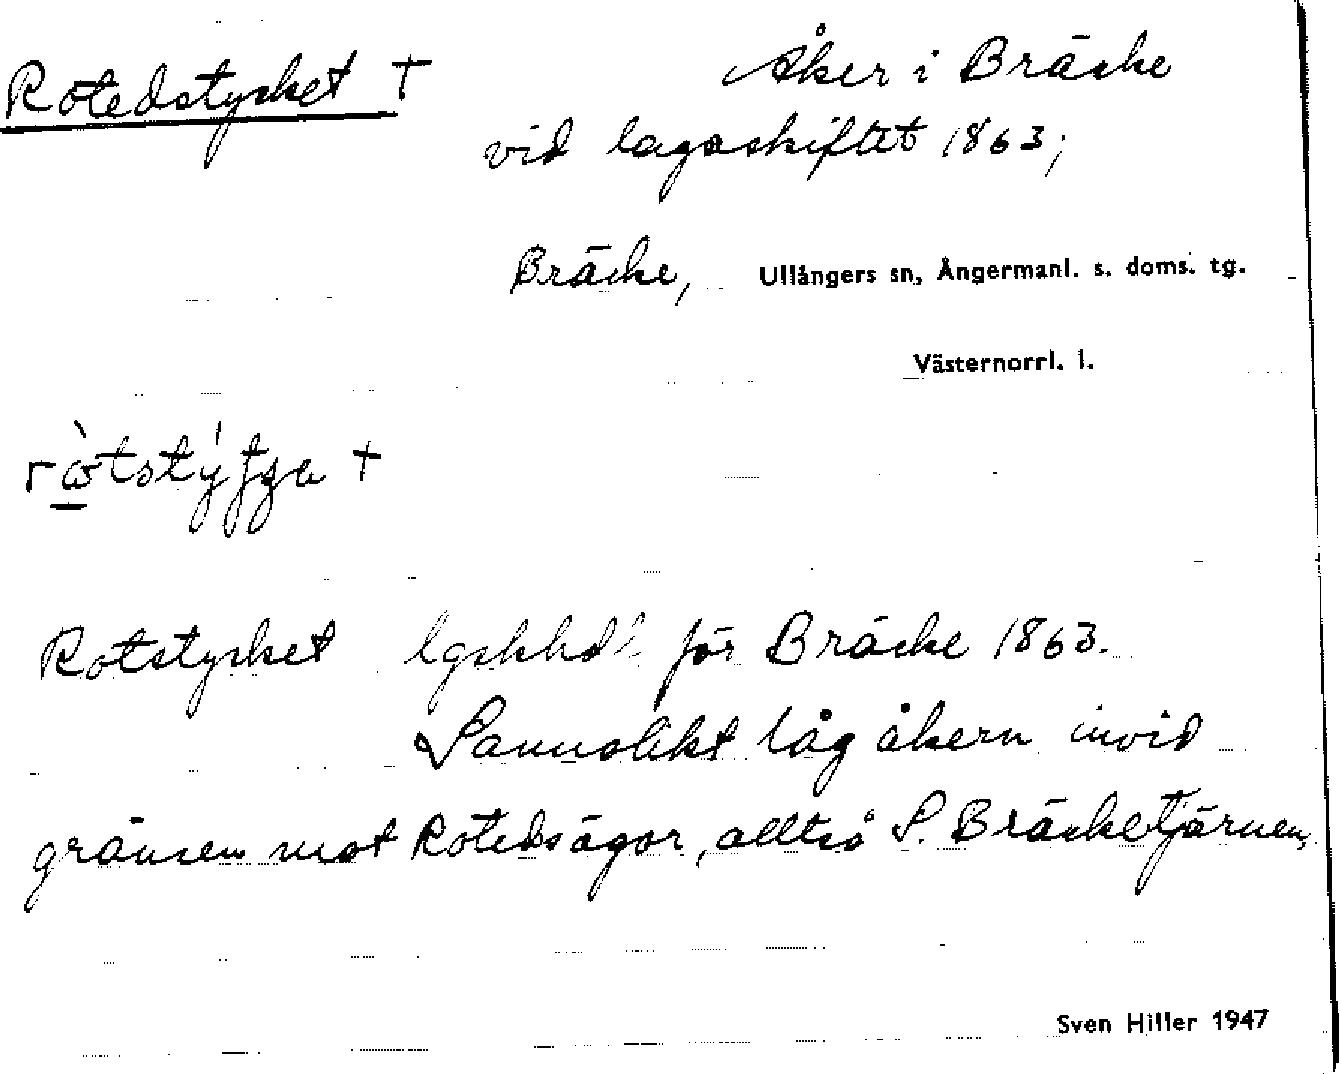 Rotedstycket †
Åker i Bräcke
vid lagaskiftet 1863;
Bräcke, Ullångers sn, Ångermanl. s. doms. tg.
Västernorrl. l.
Rotstycket lgskhdl för Bräcke 1863.
Sannolikt låg åkern invid
gränsen mot Roteds ägor, alltså S. Bräcketjärnen,
Sven Hiller 1947